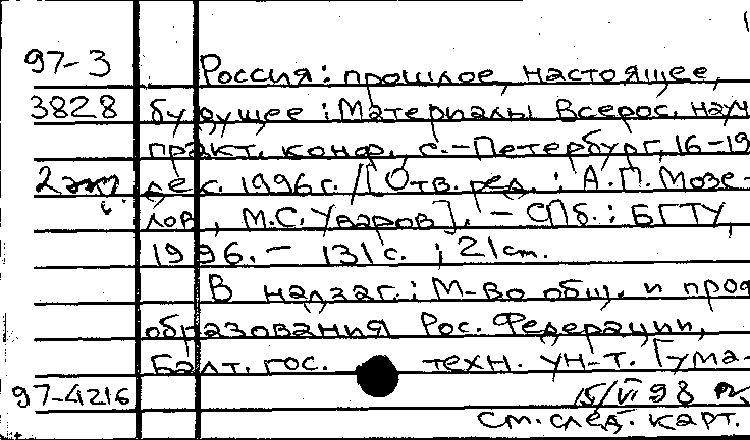 97-3 Россия: прошлое, настоящее,
3828 будущее: Материалы Всерос. науч
практ. конф., С.-Петербург, 16-19
2 экз дес. 1996 г. / [Отв. ред.: А.П. Мозе-
лов, М.С. Уваров]. - СПб.: БГТУ,
1996. - 131 с. ; 21 cm.
В надзаг.: М-во общ. и проф
образования Рос. Федерации,
Балт. гос. техн. ун-т. Гума-
97-4216 15/VI 98
см. след. карт.